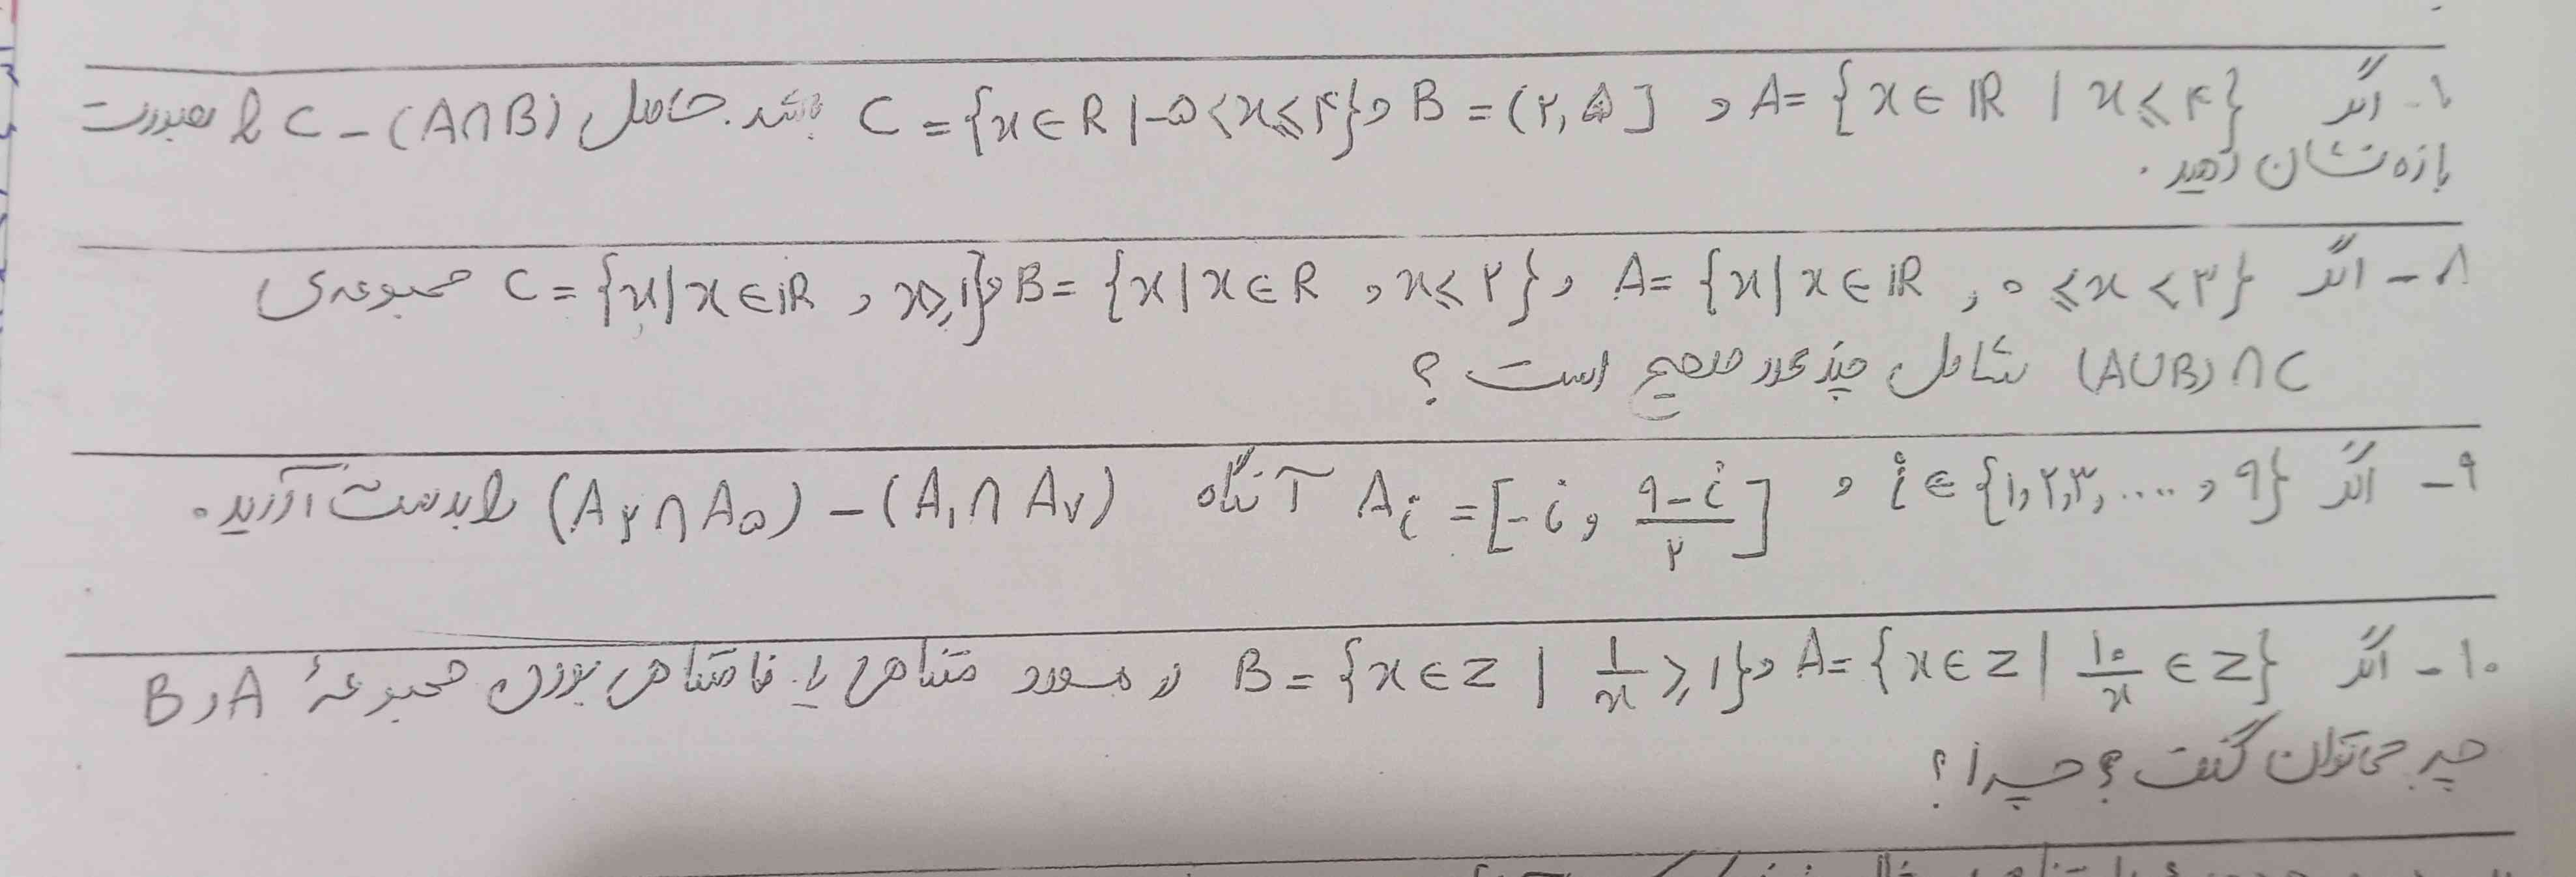 ۱- اگر A = {x ∈ ℝ | x ⩽ ۴} و B = (۲, ۵] و C = {x ∈ R | -۵ < x ⩽ ۴} باشد. حاصل C - (A ∩ B) را بصورت
بازه نشان دهید.
۸- اگر A = {x | x ∈ ℝ , ۰ ⩽ x < ۳} و B = {x | x ∈ R , x ⩽ ۲} و C = {x | x ∈ ℝ , x ⩾ ۱} مجموعه‌ی
(A ∪ B) ∩ C شامل چند عدد صحیح است ؟
۹- اگر i ∈ {۱,۲,۳, .... , ۹} و A_i = [-i , \frac{۹-i}{۲}] آنگاه (A_۲ ∩ A_۵) - (A_۱ ∩ A_۷) را بدست آورید.
۱۰- اگر A = {x ∈ Z | \frac{۱۰}{x} ∈ Z} و B = {x ∈ Z | \frac{۱}{x} ⩾ ۱} در مورد متناهی یا نامتناهی بودن مجموعهٔ A و B
چه می‌توان گفت ؟ چرا ؟